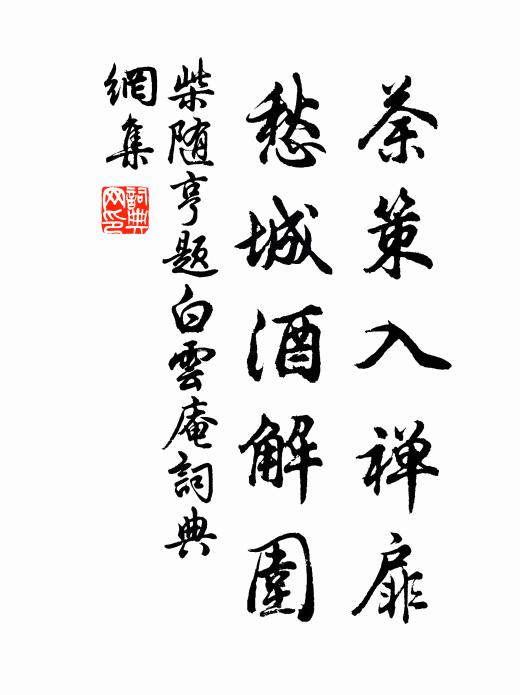 茶策入禅扉
愁城酒解圍
柴随亨题白雲庵詞典
網集
詞典網印